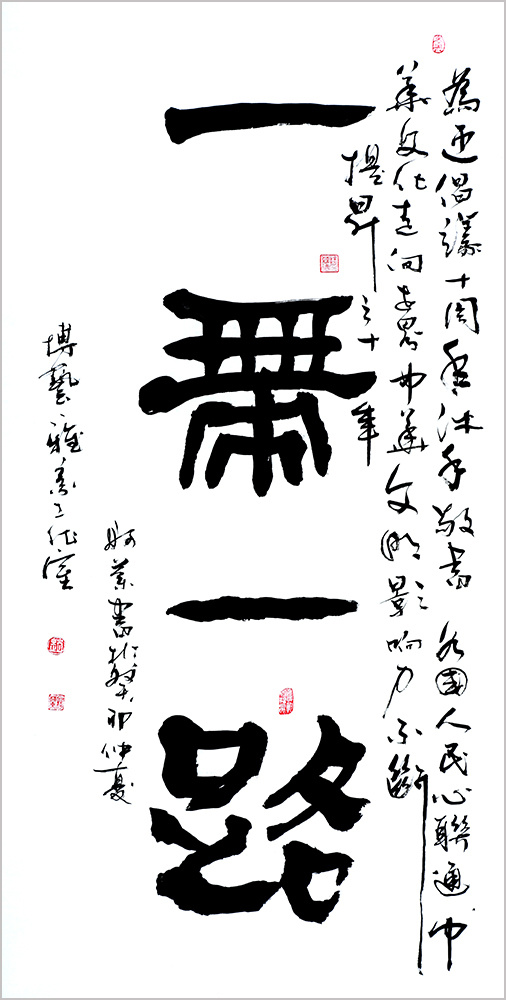 為迎倡議十周年沐手敬書 各國人民心聯通中
華文化走向世界中華文明影響之力不斷
提昇之十年
一帶一路
蘭書於癸卯仲夏
博藝雅工作室